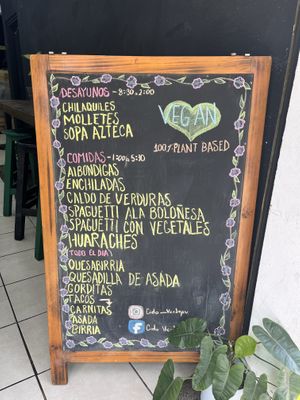 DESAYUNOS - 8:30-2:00
CHILAQUILES
MOLLETES
SOPA AZTECA
VEGAN
100% PLANT BASED
COMIDAS -
ALBONDIGAS
ENCHILADAS
CALDO DE VERDURAS
SPAGUETTI ALA BOLOÑESA
SPAGUETTI CON VEGETALES
HUARACHES
TODO EL DIA
QUESABIRRIA
QUESADILLA DE ASADA
GORDITAS
TACOS
CARNITAS
ASADA
BIRRIA